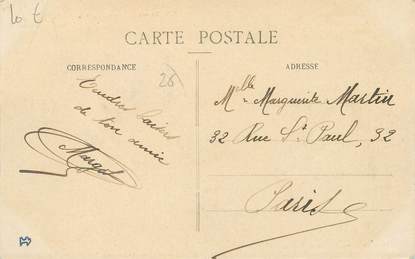 10 €
CARTE POSTALE
CORRESPONDANCE
ADRESSE
26
Tendres baisers
de ton amie
Margot
Mlle Marguerite Martin
32 Rue St Paul, 32
Paris